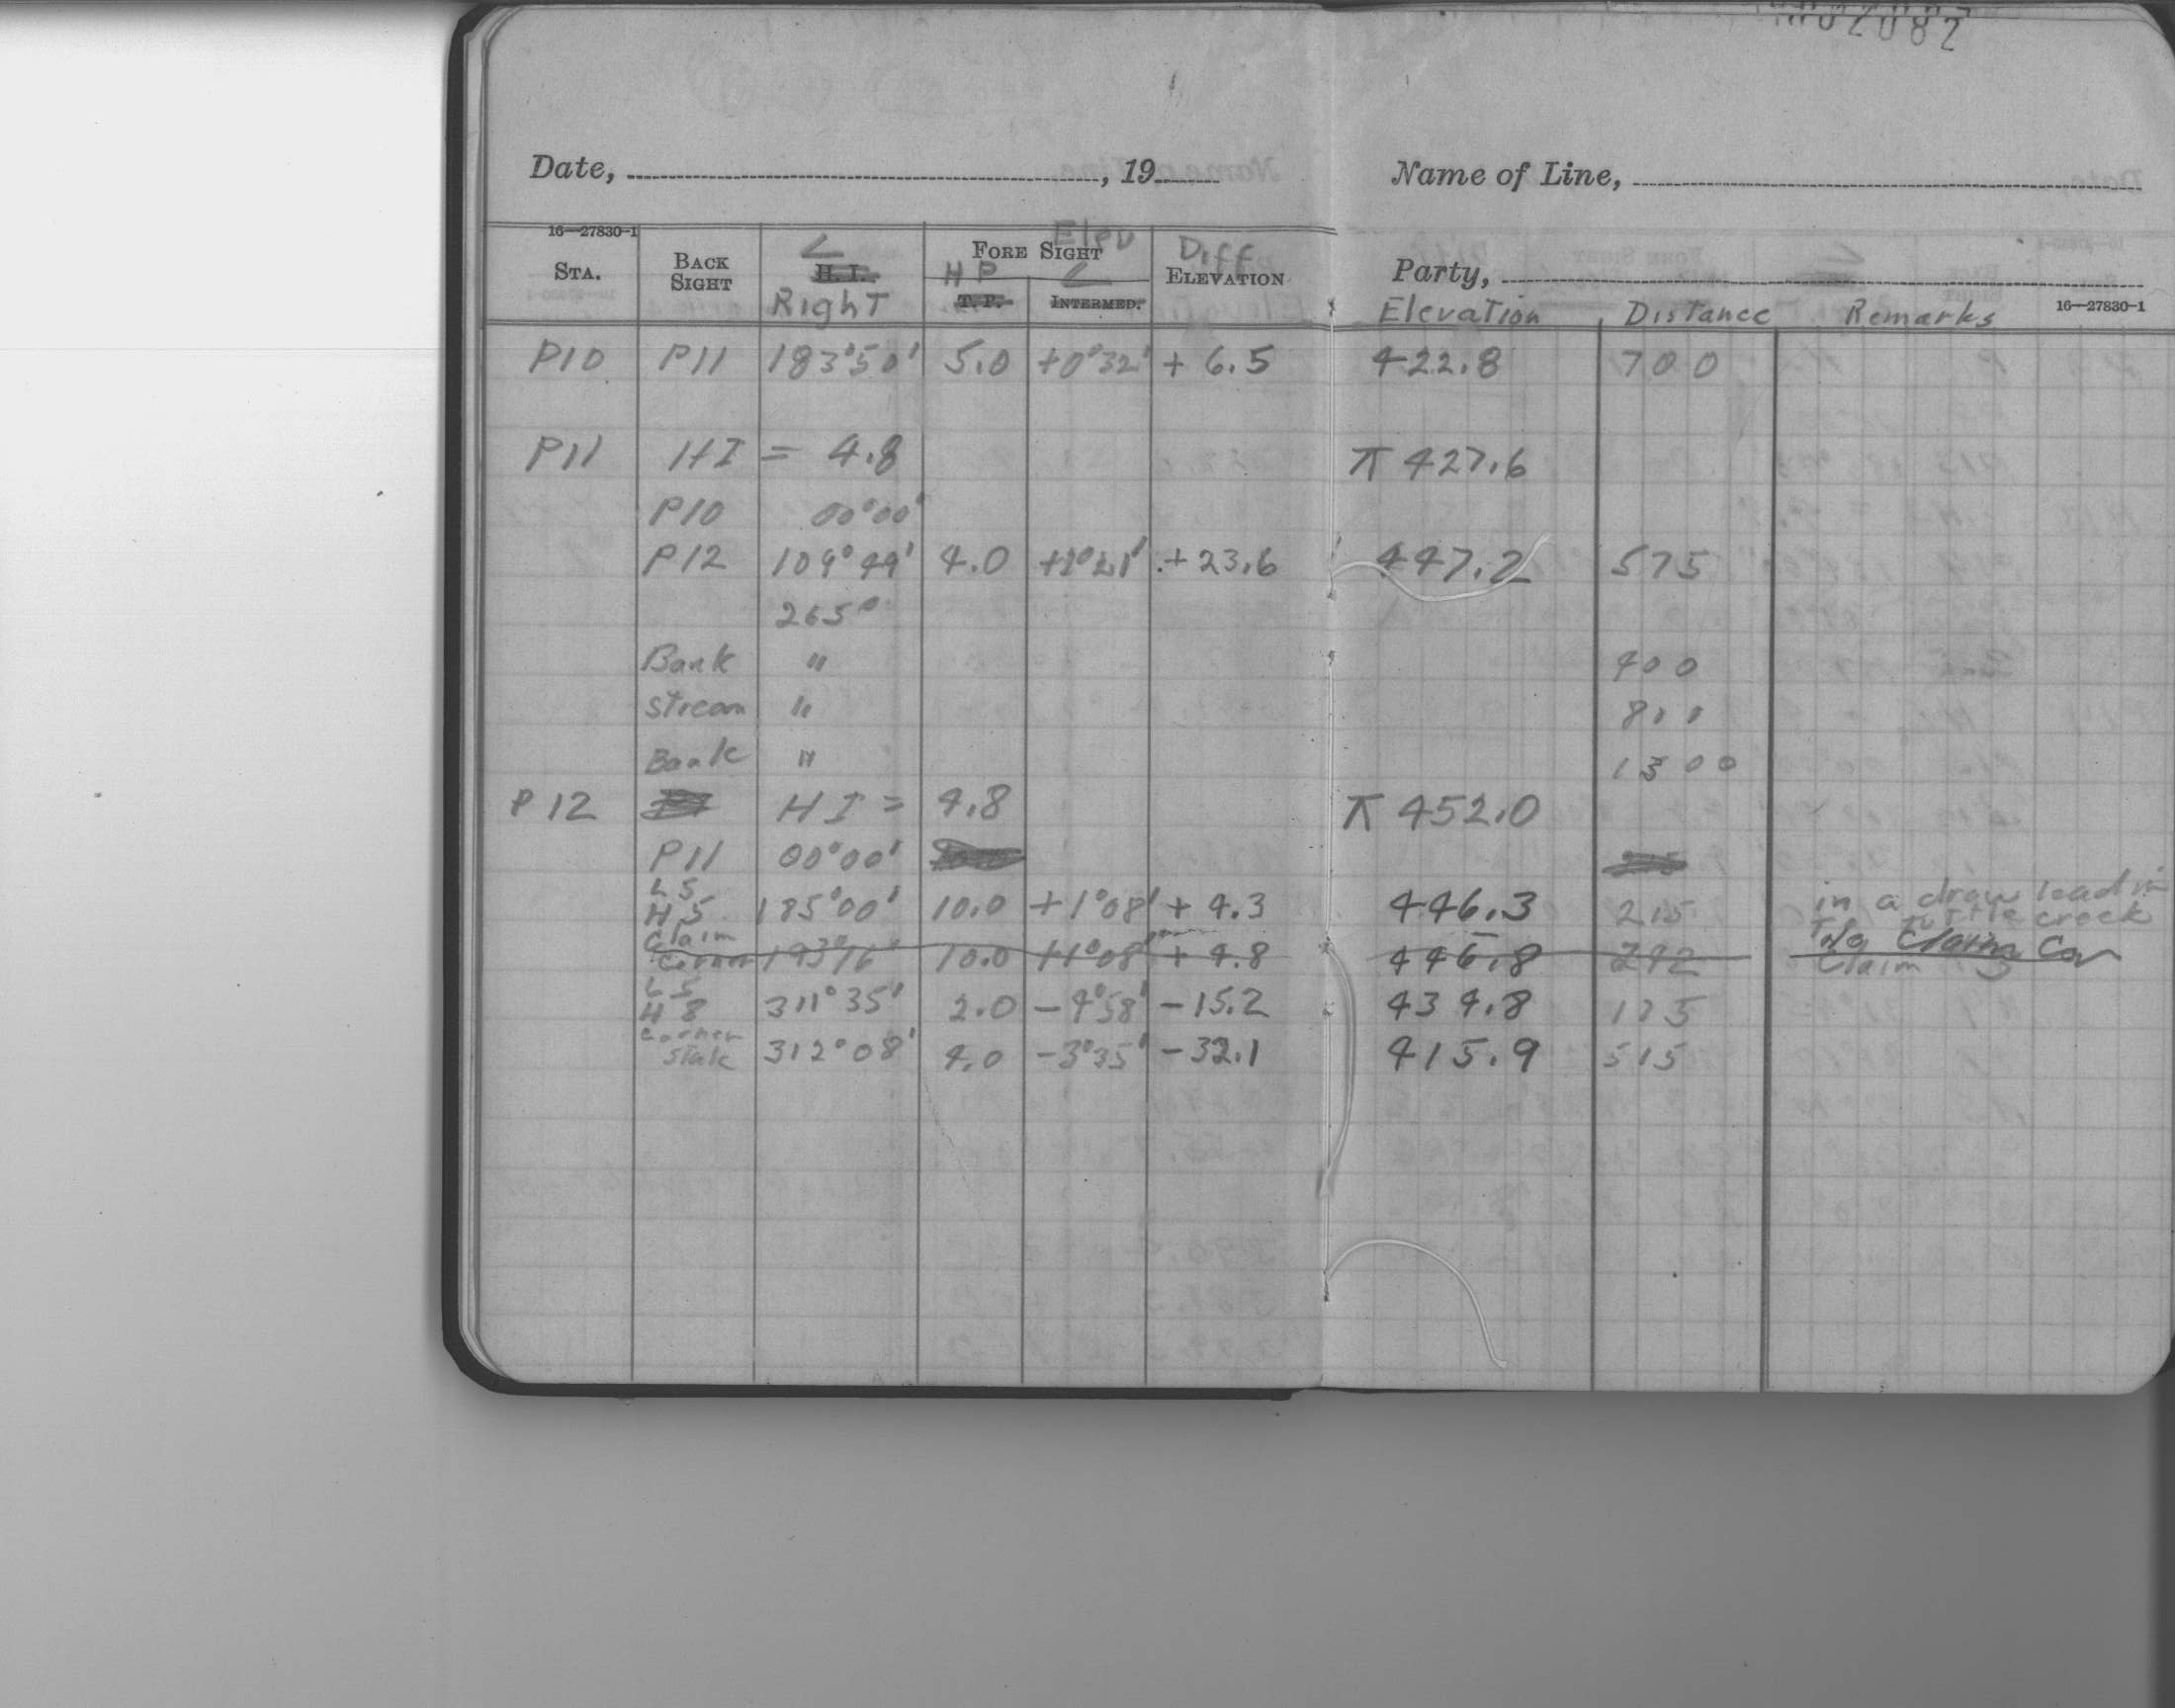 Date, , 19
Name of Line,
16—27830-1
STA. BACK SIGHT ∠ H.I. Right FORE SIGHT Elev HP T.P. ∠ INTERMED. Diff ELEVATION
Party,
Elevation Distance Remarks 16—27830-1
P10 P11 183°50' 5.0 +0°32' + 6.5 422.8 700
P11 HI = 4.8 π 427.6
P10 00°00'
P12 109°49' 4.0 + 23.6 447.2 575
265°
Bank " 400
Stream "
Bank " 1300
P12 HI = 4.8 π 452.0
P11 00°00'
LS
H5 185°00' 10.0 +1°08' + 4.3 446.3 215 in a draw lead in
To Tuttle creek
Claim
Corner 193°16' 10.0 +1°08' + 4.8 446.8 242 No Claim Cor
Claim
LS
H8 311°35' 2.0 -4°58' -15.2 434.8 175
Corner
Stak 312°08' 4.0 -3°35' -32.1 415.9 515